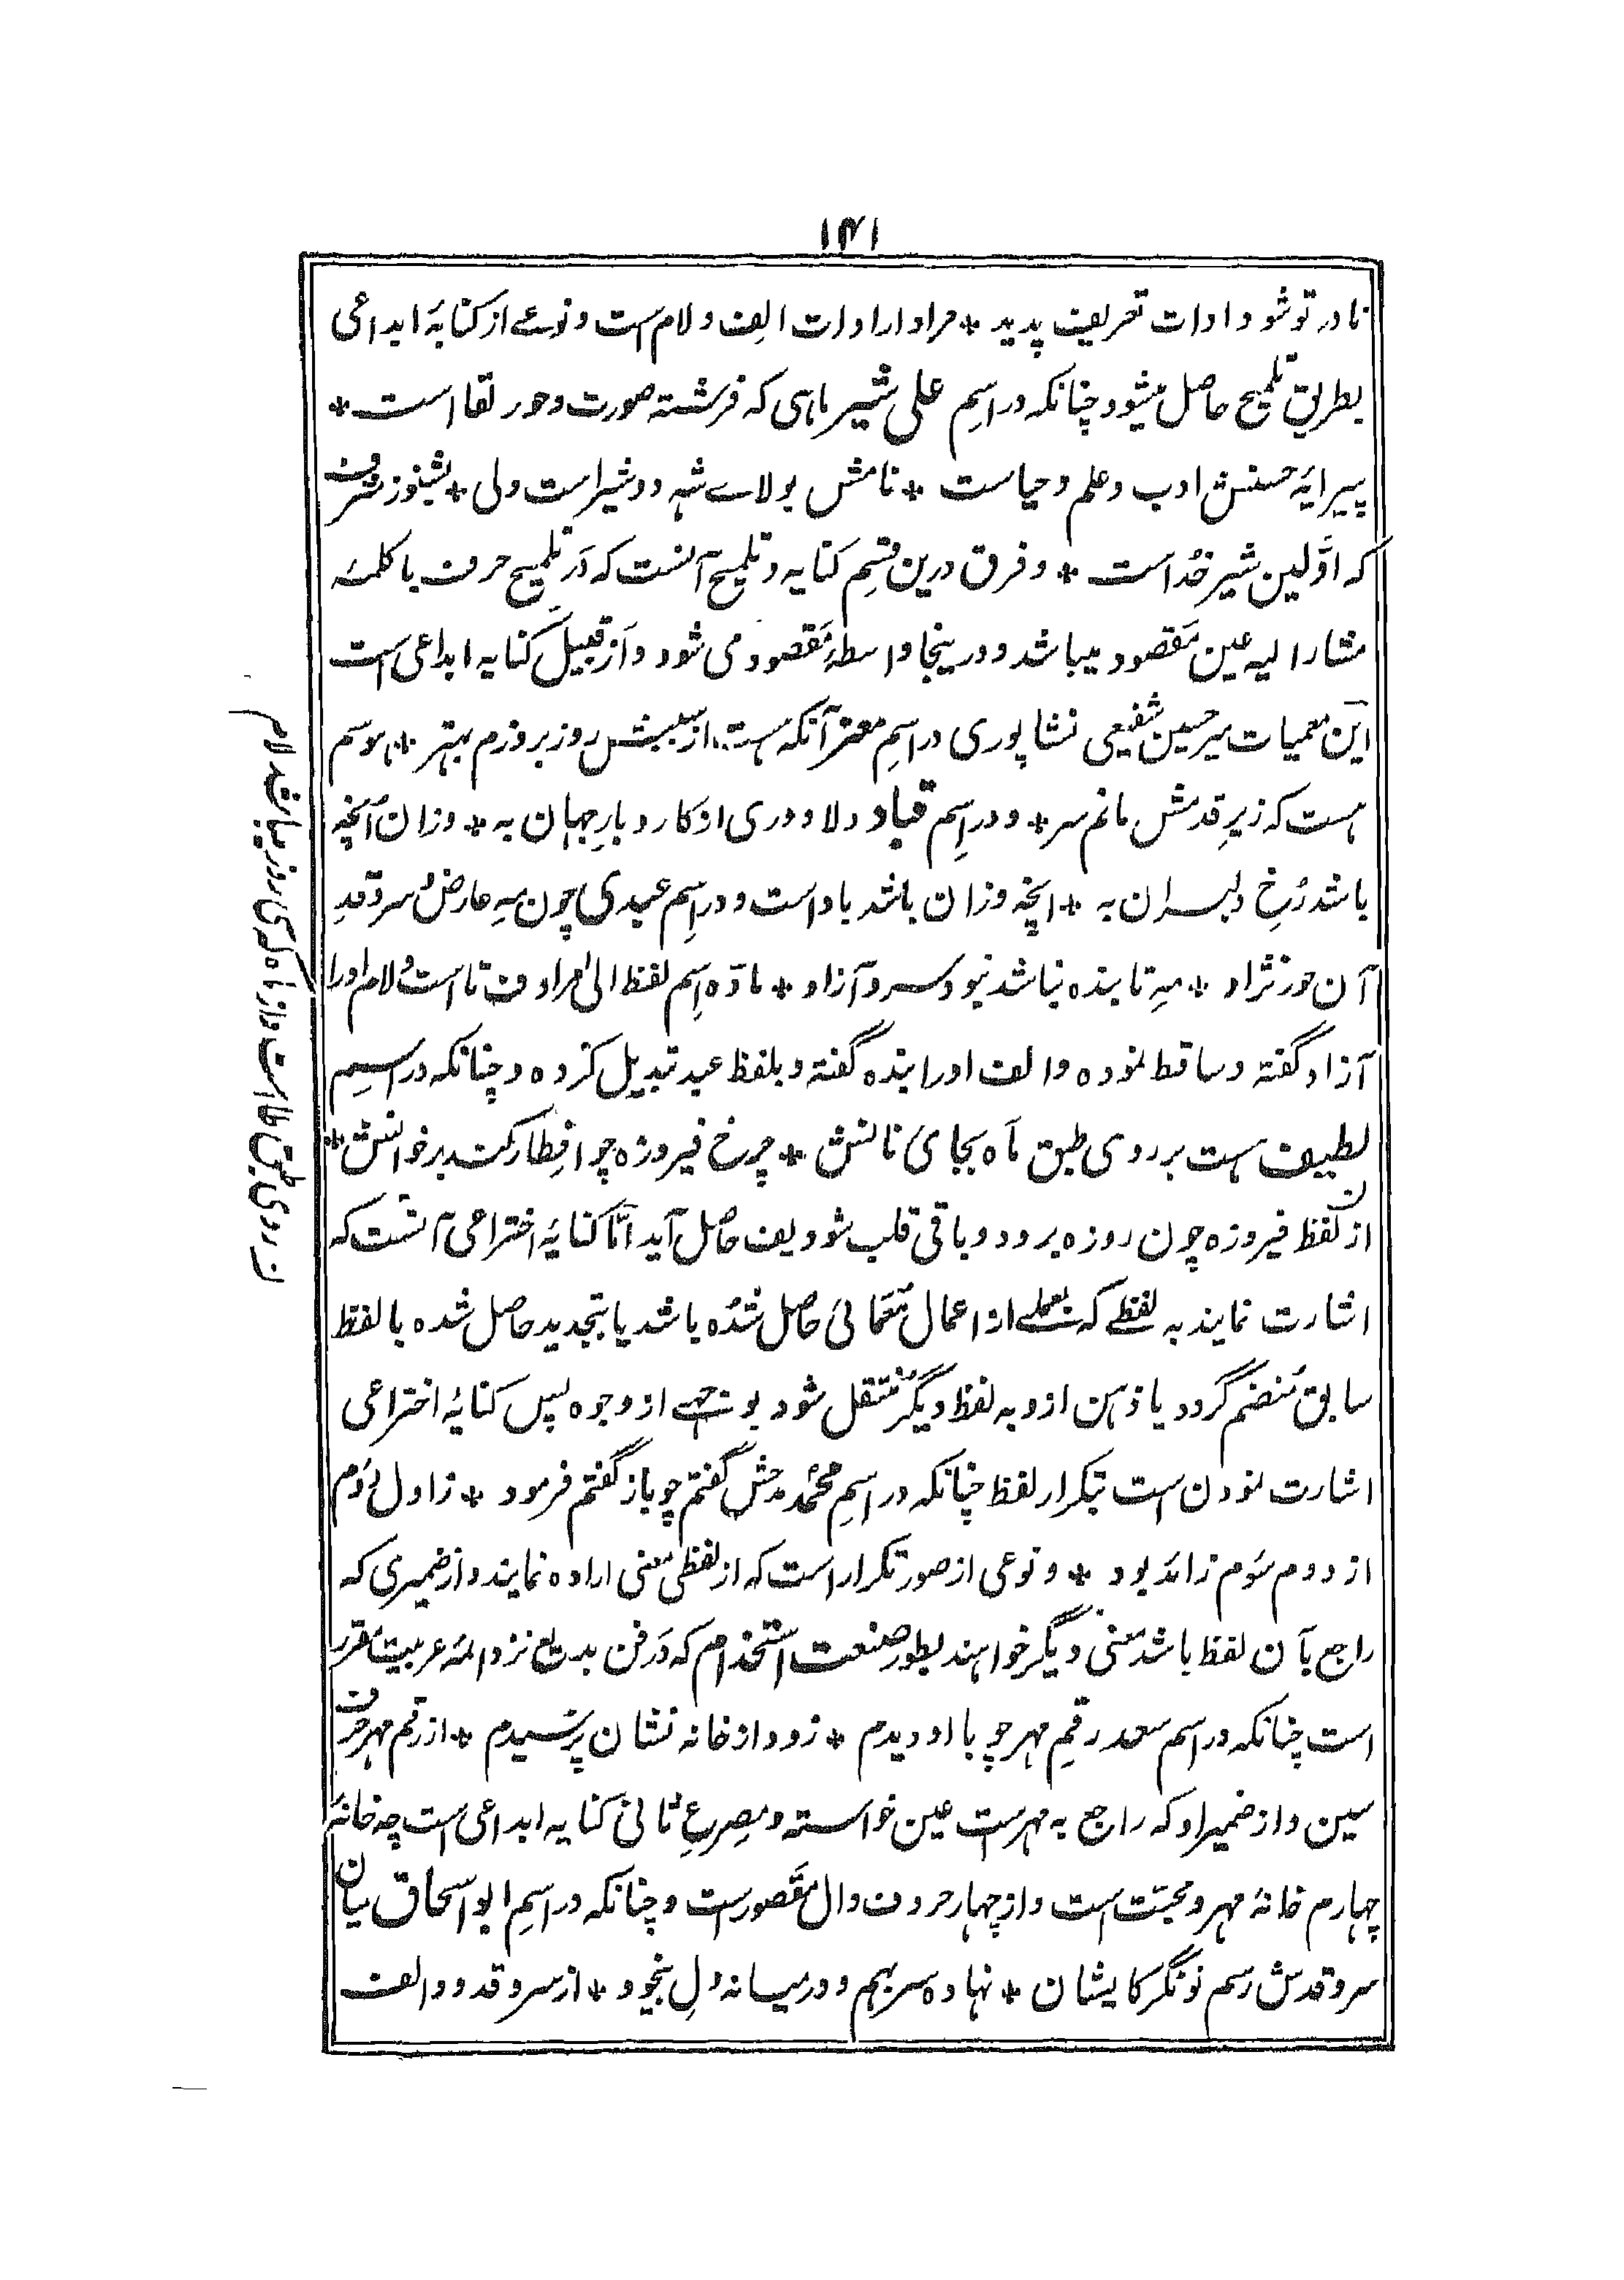 ۱۴۱
نادر تو شود ادات تعریف پدید * مراد از ادات الف و لام است و نوعے از کنایهٔ ابداعی
بطریق تلمیح حاصل میشود چنانکه در اسمِ علی شیر ماهی که فرشته صورت و حور لقا است *
پیرایهٔ حسنش ادب و علم و حیاست * نامش بولاے شه دو شیر است ولی * بشنو ز شرف
که اوّلین شیر خداست * و فرق درین قسمِ کنایه و تلمیح آنست که در تلمیح حرف یا کلمهٔ
مشارالیه عین مقصود میباشد و در ینجا واسطهٔ مقصود می شود و از قبیل کنایه ابداعی است
این معمیات میر حسین شفیعی نشاپوری در اسمِ معز آنکه هست از عیبش روز بروزم بهتر * هوسم
هست که زیرِ قدمش مانم سر * و در اسِم قباد دلا دوری از کار و بارِ جهان به * وزان آنچه
باشد رُخِ دلبران به * انچه وزان باشد باد است و در اسِم عیدی چون مهِ عارض و سرو قدِ
آن حور نژاد * مهِ تابنده نباشد نبود سرو آزاد * مادّه اسِم لفظ الی مرادف تا است و لام او را
آزاد گفته و ساقط نموده و الف او را بنده گفته و بلفظ عید تبدیل کرده و چنانکه در اسمِ
لطیف هست بر روی طبق ماه بجای نانش * چرخ فیروزه چو افطار کند بر خوانش *
از لفظ فیروزه چون روزه برود و باقی قلب شود یف حاصل آید امّا کنایهٔ اختراعی آنست که
اشارت نمایند به لفظے که بعملے از اعمال معمائی حاصل شده باشد یا بتجدید حاصل شده با لفظ
سابق منضم گردد یا ذهن ازو به لفظ دیگر منتقل شود بوجهے از وجوه پس کنایهٔ اختراعی
اشارت نمودن است بتکرار لفظ چنانکه در اسمِ محمّد مدحش گفتم چو باز گفتم فرمود * ز اول دوم
از دوم سوم زائد بود * و نوعی از صور تکرار است که از لفظی معنی اراده نمایند و از ضمیری که
راجع بآن لفظ باشد معنی دیگر خواهند بطور صنعت استخدام که در فن بدیع نزد ائمهٔ عربیت مقرر
است چنانکه در اسم سعد رقمِ مهر چو با او دیدم * زود از خانه نشان پرسیدم * از رقم مهر حرف
سین و از ضمیر او که راجع به مهرست عین خواسته و مصرعِ ثانی کنایه ابداعی است چه خانهٔ
چهارم خانهٔ مهر و محبّت است و از چهار حروف دال مقصورست و چنانکه در اسمِ ابو اسحاق بیان
سرو قدش رسم نو نگر کایشان * نهاده سر بهم و در میانه دلِ بنجود * از سرو قد دو الف
ن روی طبق طاست و از ماه که سی روز میباشد لام